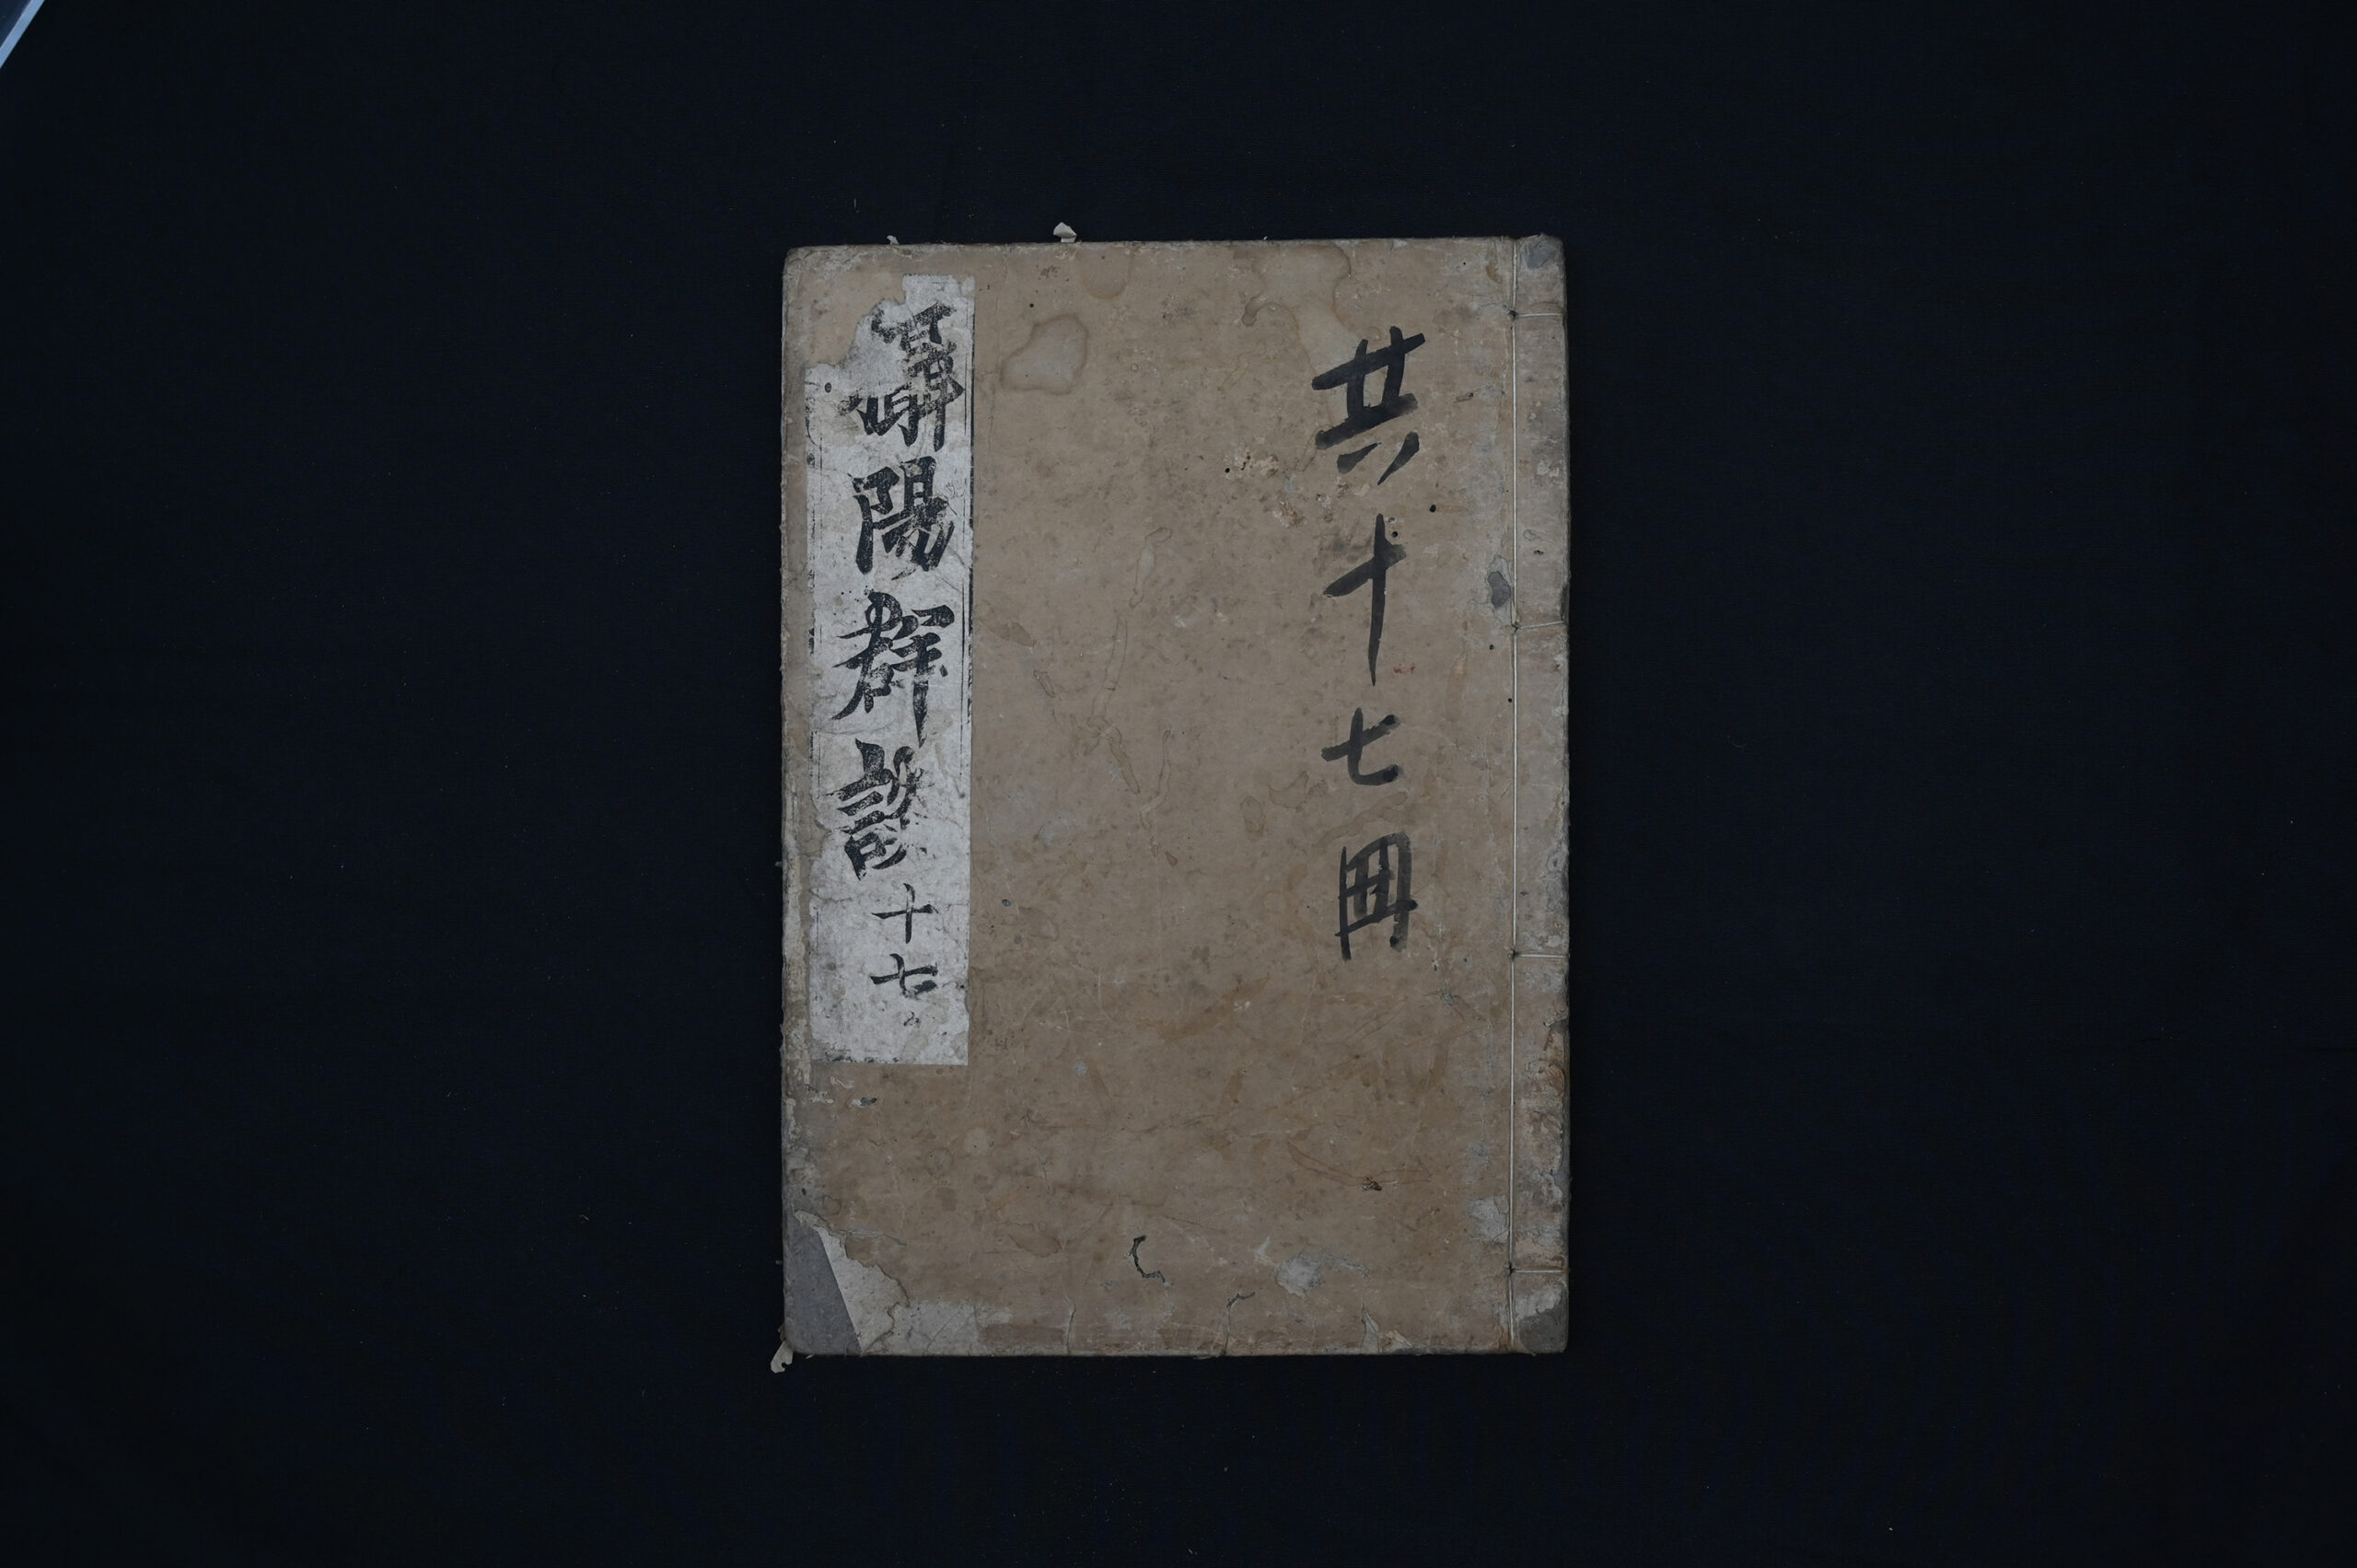 共十七冊
攝陽群談 十七